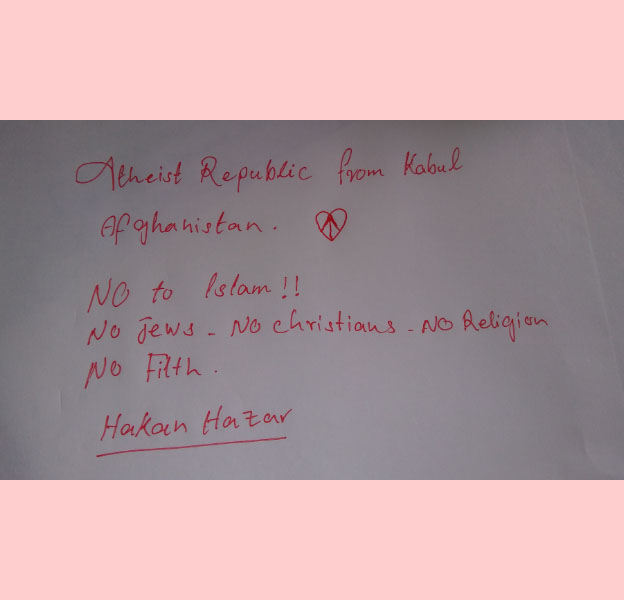 Atheist Republic from Kabul
Afghanistan.
NO to Islam!!
No Jews - NO christians - NO Religion
NO Filth.
Hakan Hazar